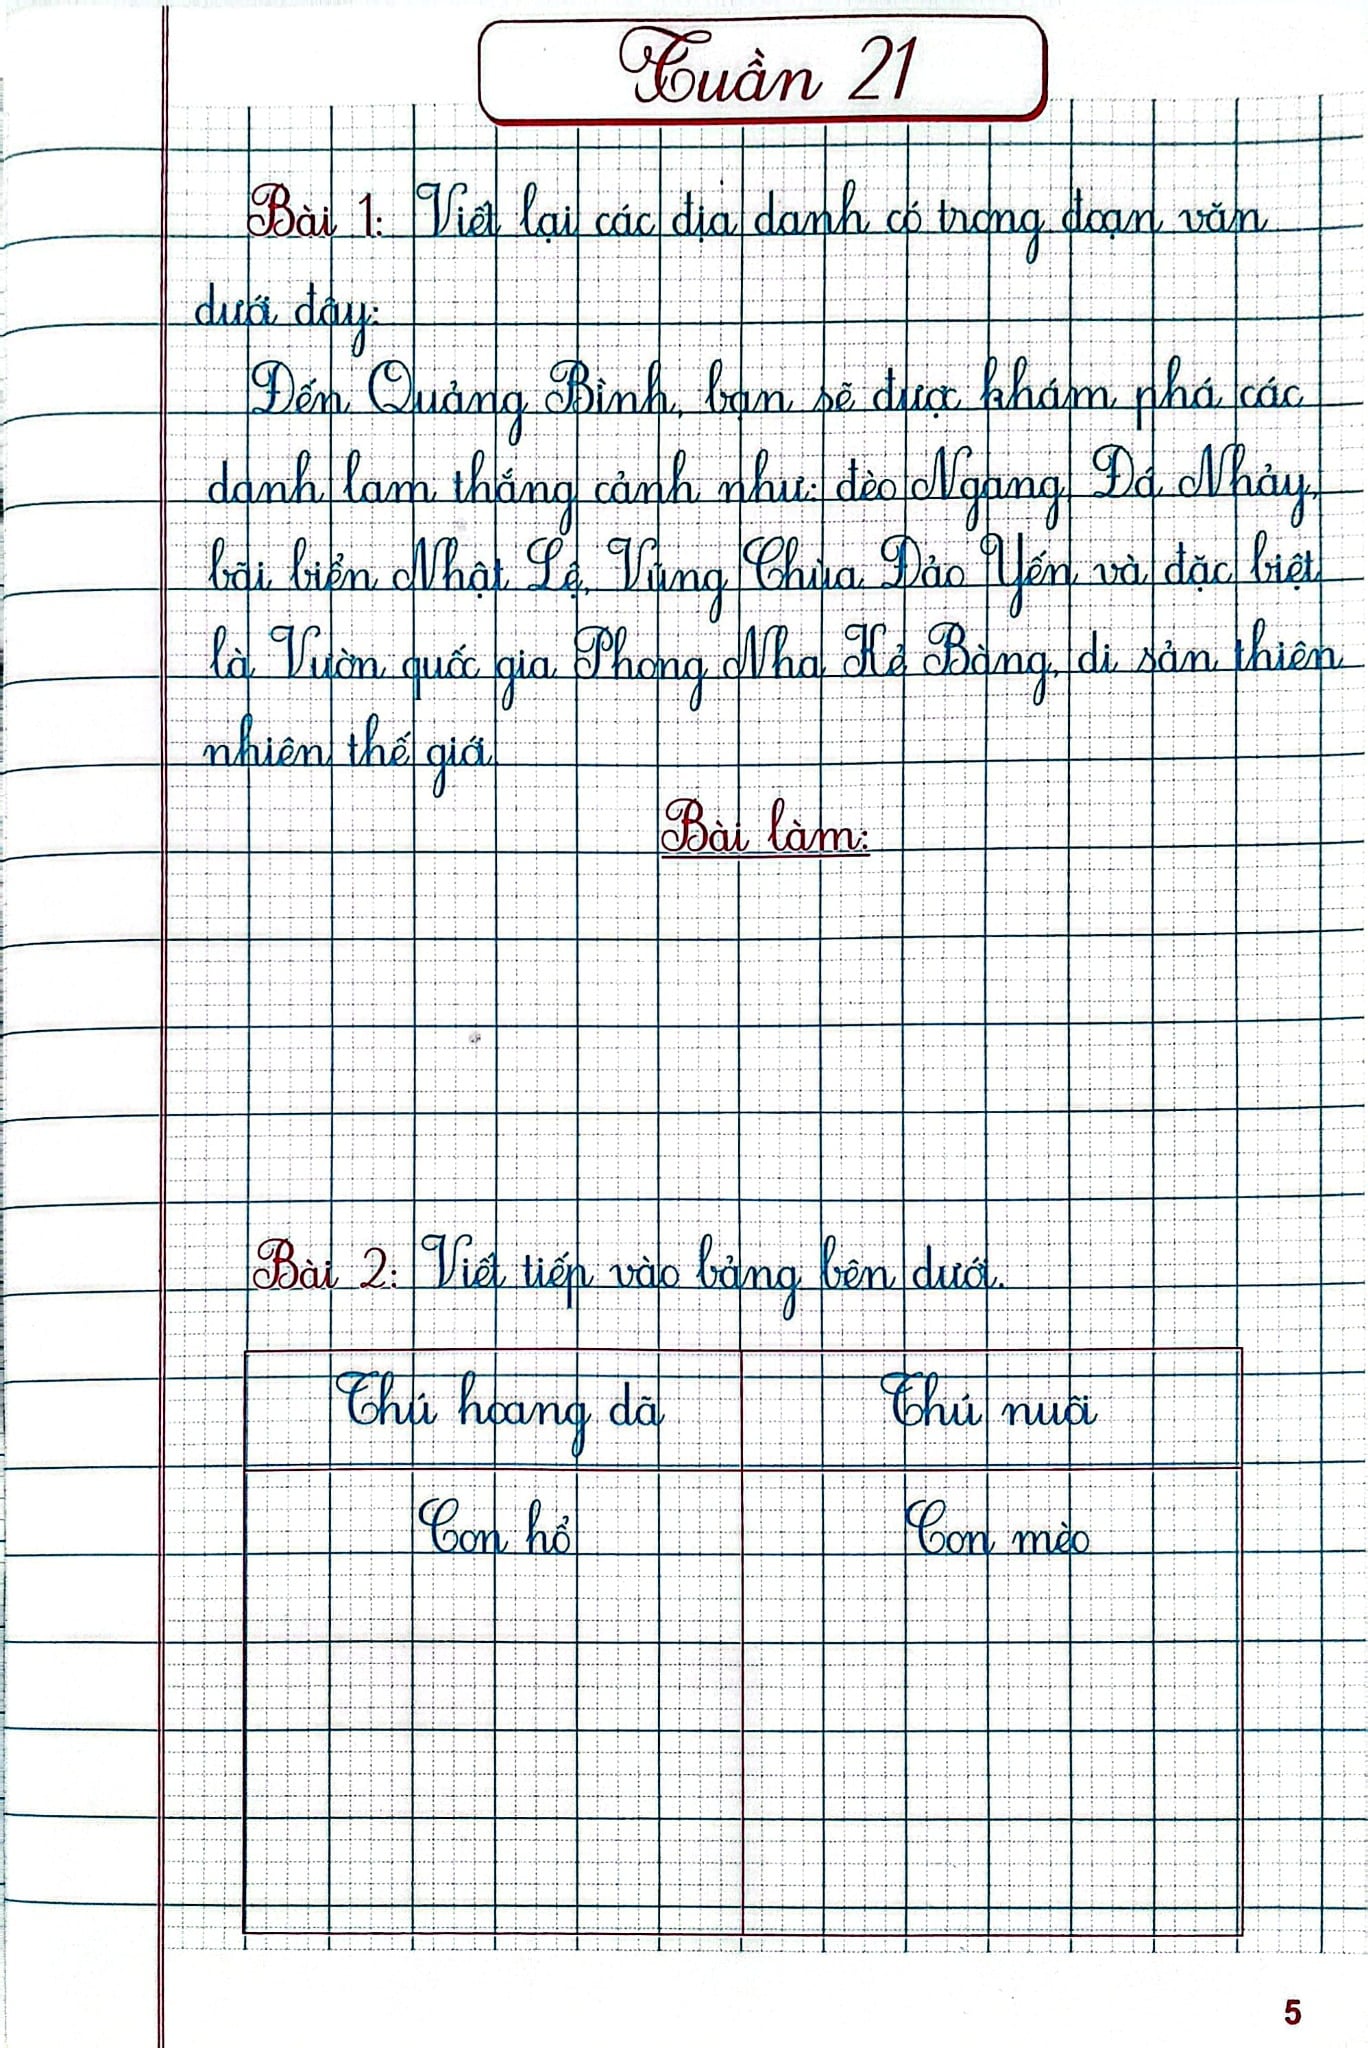 Tuần 21
Bài 1: Viết lại các địa danh có trong đoạn văn
dưới đây:
Đến Quảng Bình, bạn sẽ được khám phá các
danh lam thắng cảnh như: đèo Ngang, Đá Nhảy,
bãi biển Nhật Lệ, Vũng Chùa Đảo Yến và đặc biệt
là Vườn quốc gia Phong Nha Kẻ Bàng, di sản thiên
nhiên thế giới
Bài làm:
Bài 2: Viết tiếp vào bảng bên dưới.
Thú hoang dã Thú nuôi
Con hổ Con mèo
5